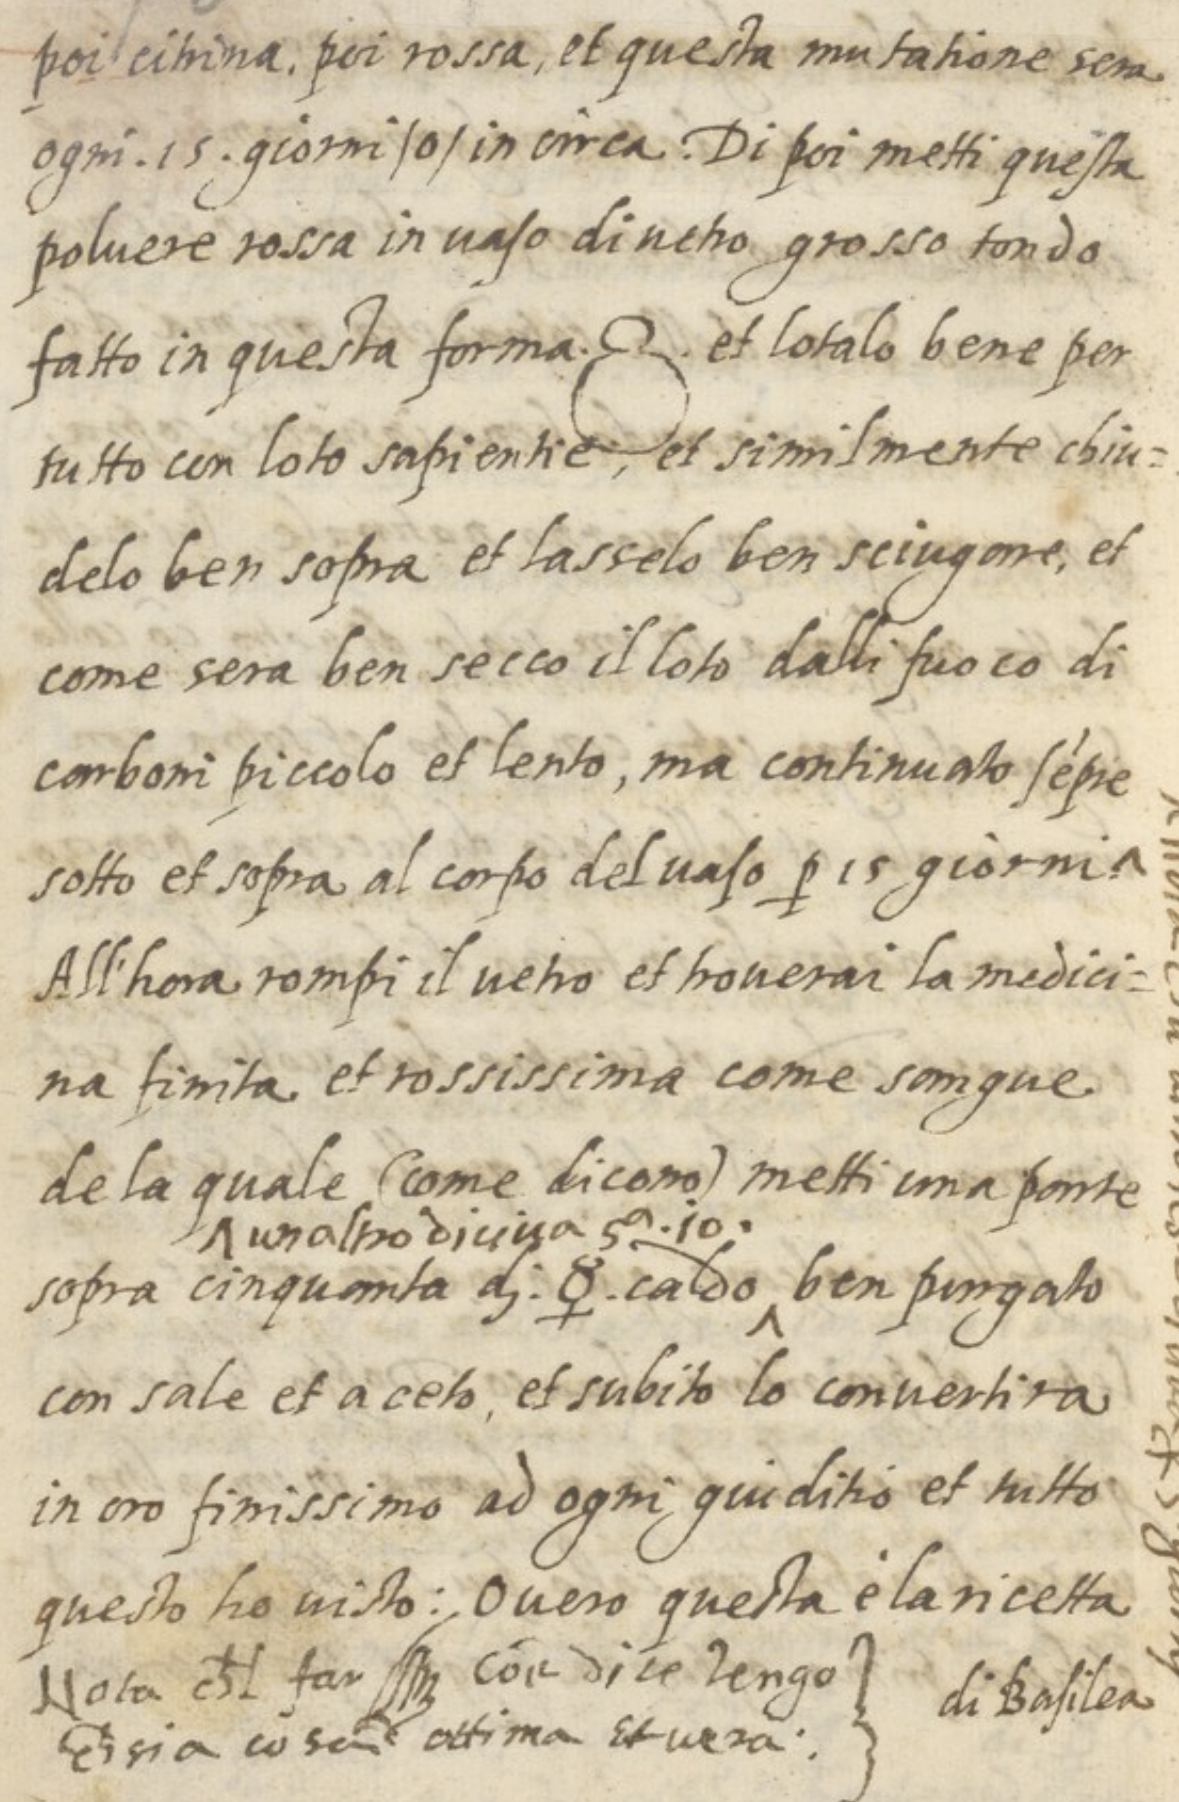 poi citrina. poi rossa, et questa mutatione sera
ogni. 15. giorni /o/ in circa. Di poi metti questa
poluere rossa in uaso di uetro grosso tondo
fatto in questa forma. et lotalo bene per
tutto con loto sapientie, et similmente chiu=
delo ben sopra et lasselo ben sciugare, et
come sera ben secco il loto dalli fuoco di
carboni piccolo et lento, ma continuato sépre
sotto et sopra al corpo del uaso p 15 giorni.^
All'hora rompi il uetro et trouerai la medici=
na finita et rossissima come sangue.
de la quale (come dicono) metti una parte
^ un altro diciua 5a. 10.
sopra cinquanta dj. ☿. caldo ^ ben purgato
con sale et aceto, et subito lo conuertira
in oro finissimo ad ogni giuditio et tutto
questo ho uisto: Ouero questa é la ricetta
di Basilea
Nota far dice tengo
sia cosa ottima et uera.